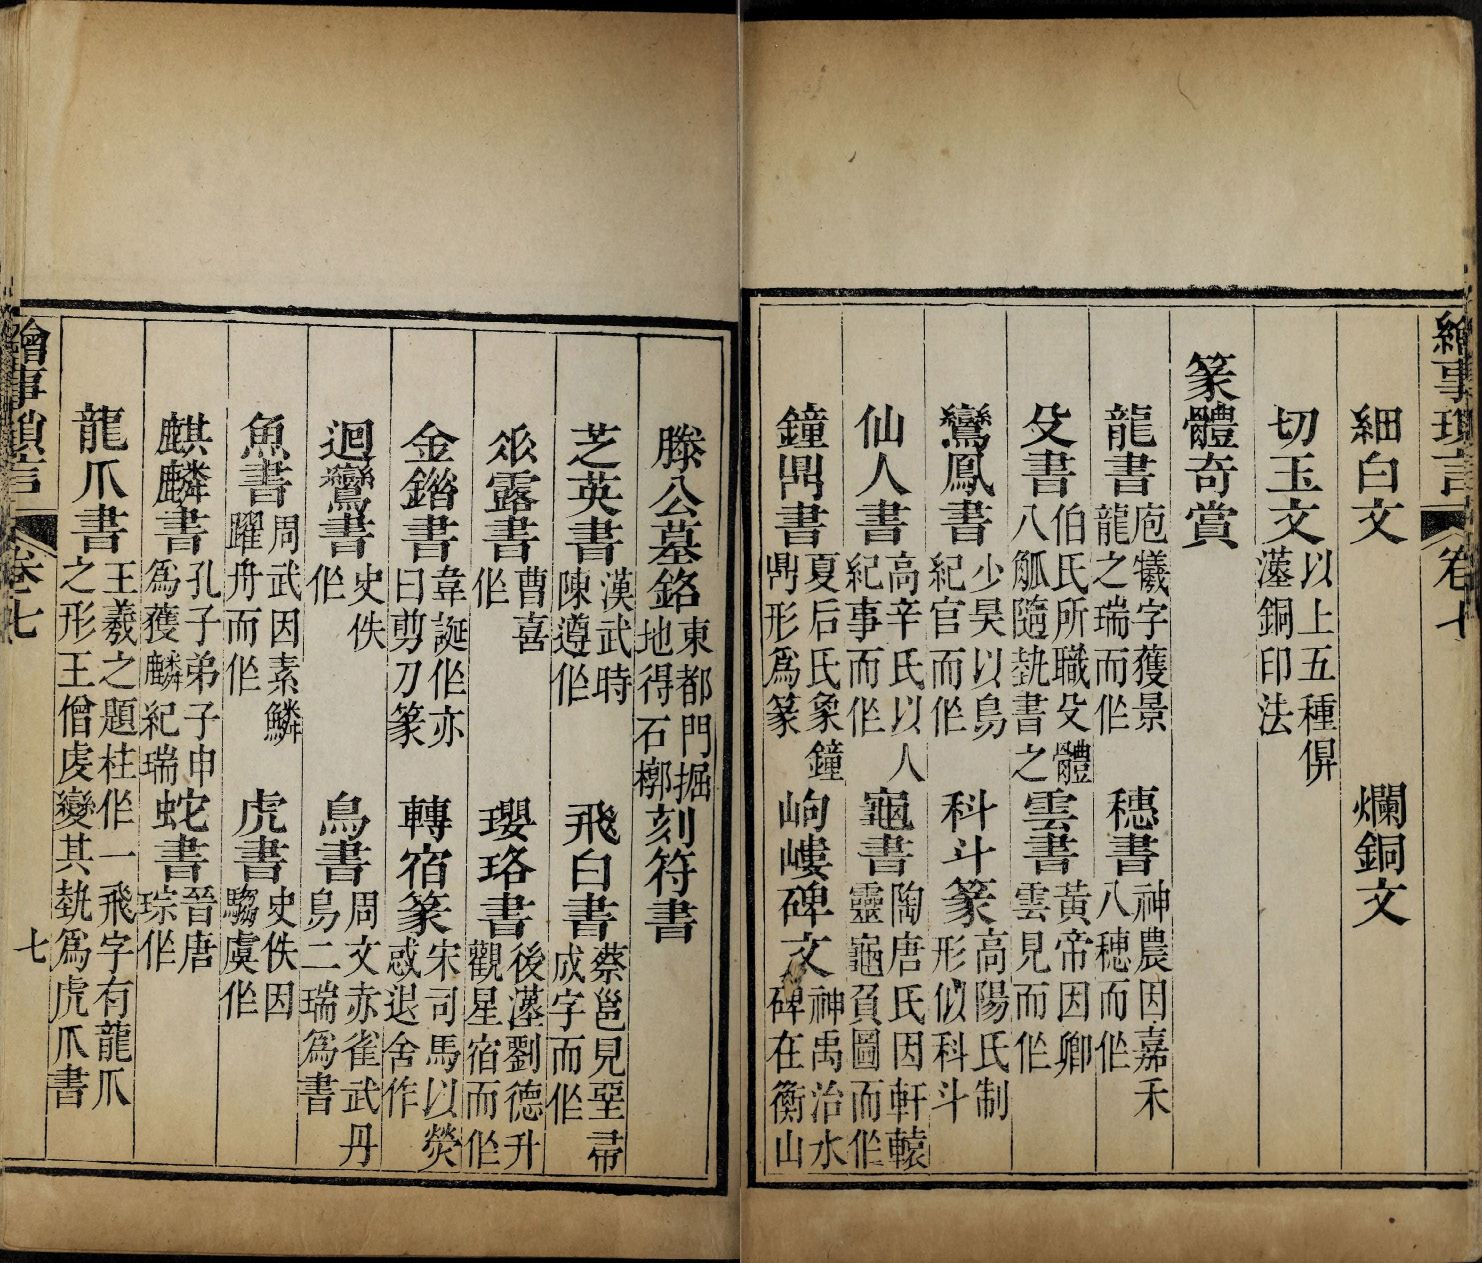 繪事瑣言 卷七
細白文 爛銅文
切玉文 以上五種倂漢銅印法
篆體奇賞
龍書 庖犧字獲景龍之瑞而作 穗書 神農因嘉禾八穗而作
殳書 伯氏所職殳體八觚隨埶書之 雲書 黃帝因卿雲見而作
鸞鳳書 少昊以鳥紀官而作 科斗篆 高陽氏制形似科斗
仙人書 高辛氏以人紀事而作 龜書 陶唐氏因軒轅靈龜負圖而作
鐘鼎書 夏后氏象鐘鼎形爲篆 岣嶁碑文 神禹治水碑在衡山
滕公墓銘 東都門掘地得石槨 刻符書
芝英書 漢武時陳遵作 飛白書 蔡邕見堊帚成字而作
垂露書 曹喜作 瓔珞書 後漢劉德升觀星宿而作
金錯書 韋誕作亦曰剪刀篆 轉宿篆 宋司馬以熒惑退舍作
迴鸞書 史佚作 鳥書 周文赤雀武丹鳥二瑞爲書
魚書 周武因素鱗躍舟而作 虎書 史佚因騶虞作
麒麟書 孔子弟子申爲獲麟紀瑞 蛇書 晉唐琮作
龍爪書 王羲之題柱作一飛字有龍爪之形王僧虔變其埶爲虎爪書
繪事瑣言 卷七 七